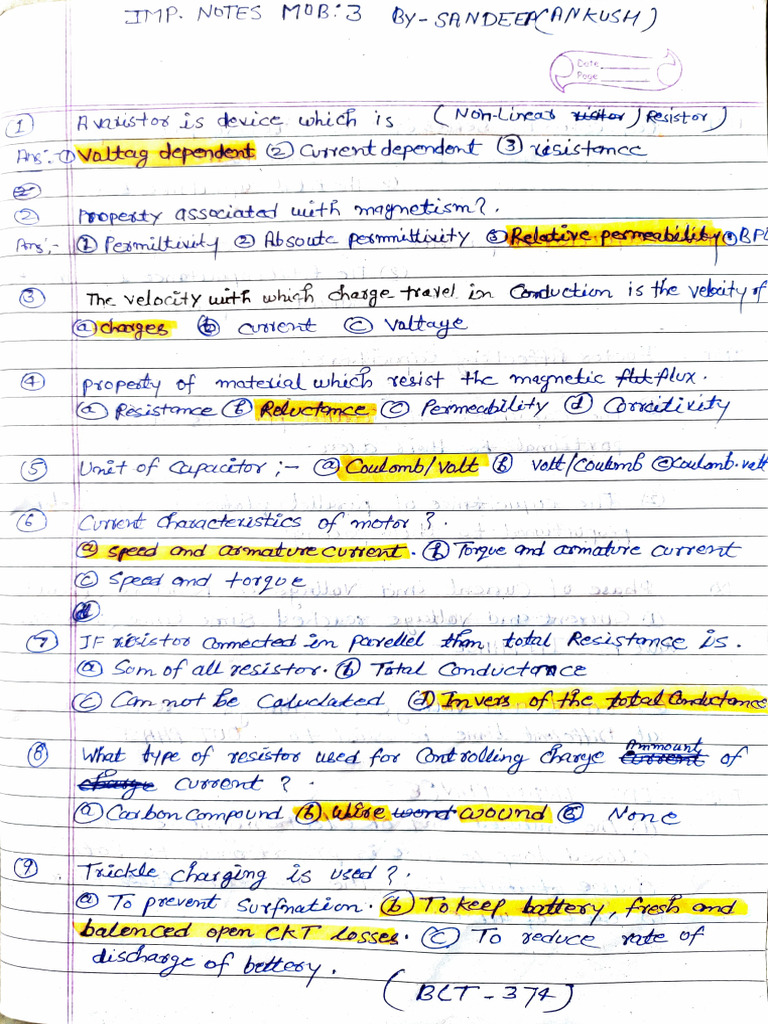 IMP. NOTES MOB: 3 BY-SANDEEP(ANKUSH)
Date
Page
① A varistor is device which is (Non-Linear) Resistor)
Ans:- ① Voltag dependent ② Current dependent ③ resistance
② Property associated with magnetism?.
Ans:- ① Permiltivity ② Absoute permmittivity ③ Relative permeability ④ BPL
③ The velocity with which charge travel in Conduction is the velocity of
ⓐ charges ⓑ current ⓒ Voltage
④ property of material which resist the magnetic flux.
ⓐ Resistance ⓑ Reluctance ⓒ Permeability ⓓ Corrcitivity
⑤ Unit of Capacitor ;- ⓐ Coulomb/volt ⓑ volt/coulomb ⓒ coulomb-volt
⑥ Current characteristics of motor ?.
ⓐ speed and armature current. ⓑ Torque and armature current
ⓒ speed and torque
⑦ IF resistor connected in parellel than total Resistance is.
ⓐ Sum of all resistor. ⓑ Total Conductance
ⓒ Can not be Calculated ⓓ Invers of the total Conductance
⑧ What type of resistor used for controlling charge Ammount of
current ?
ⓐ Carbon compound ⓑ wire wound ⓒ None
⑨ Trickle charging is used ?.
ⓐ To prevent surfnation. ⓑ To keep battery, fresh and
balenced open CKT losses. ⓒ To reduce rate of
discharge of bettery.
(BCT-374)